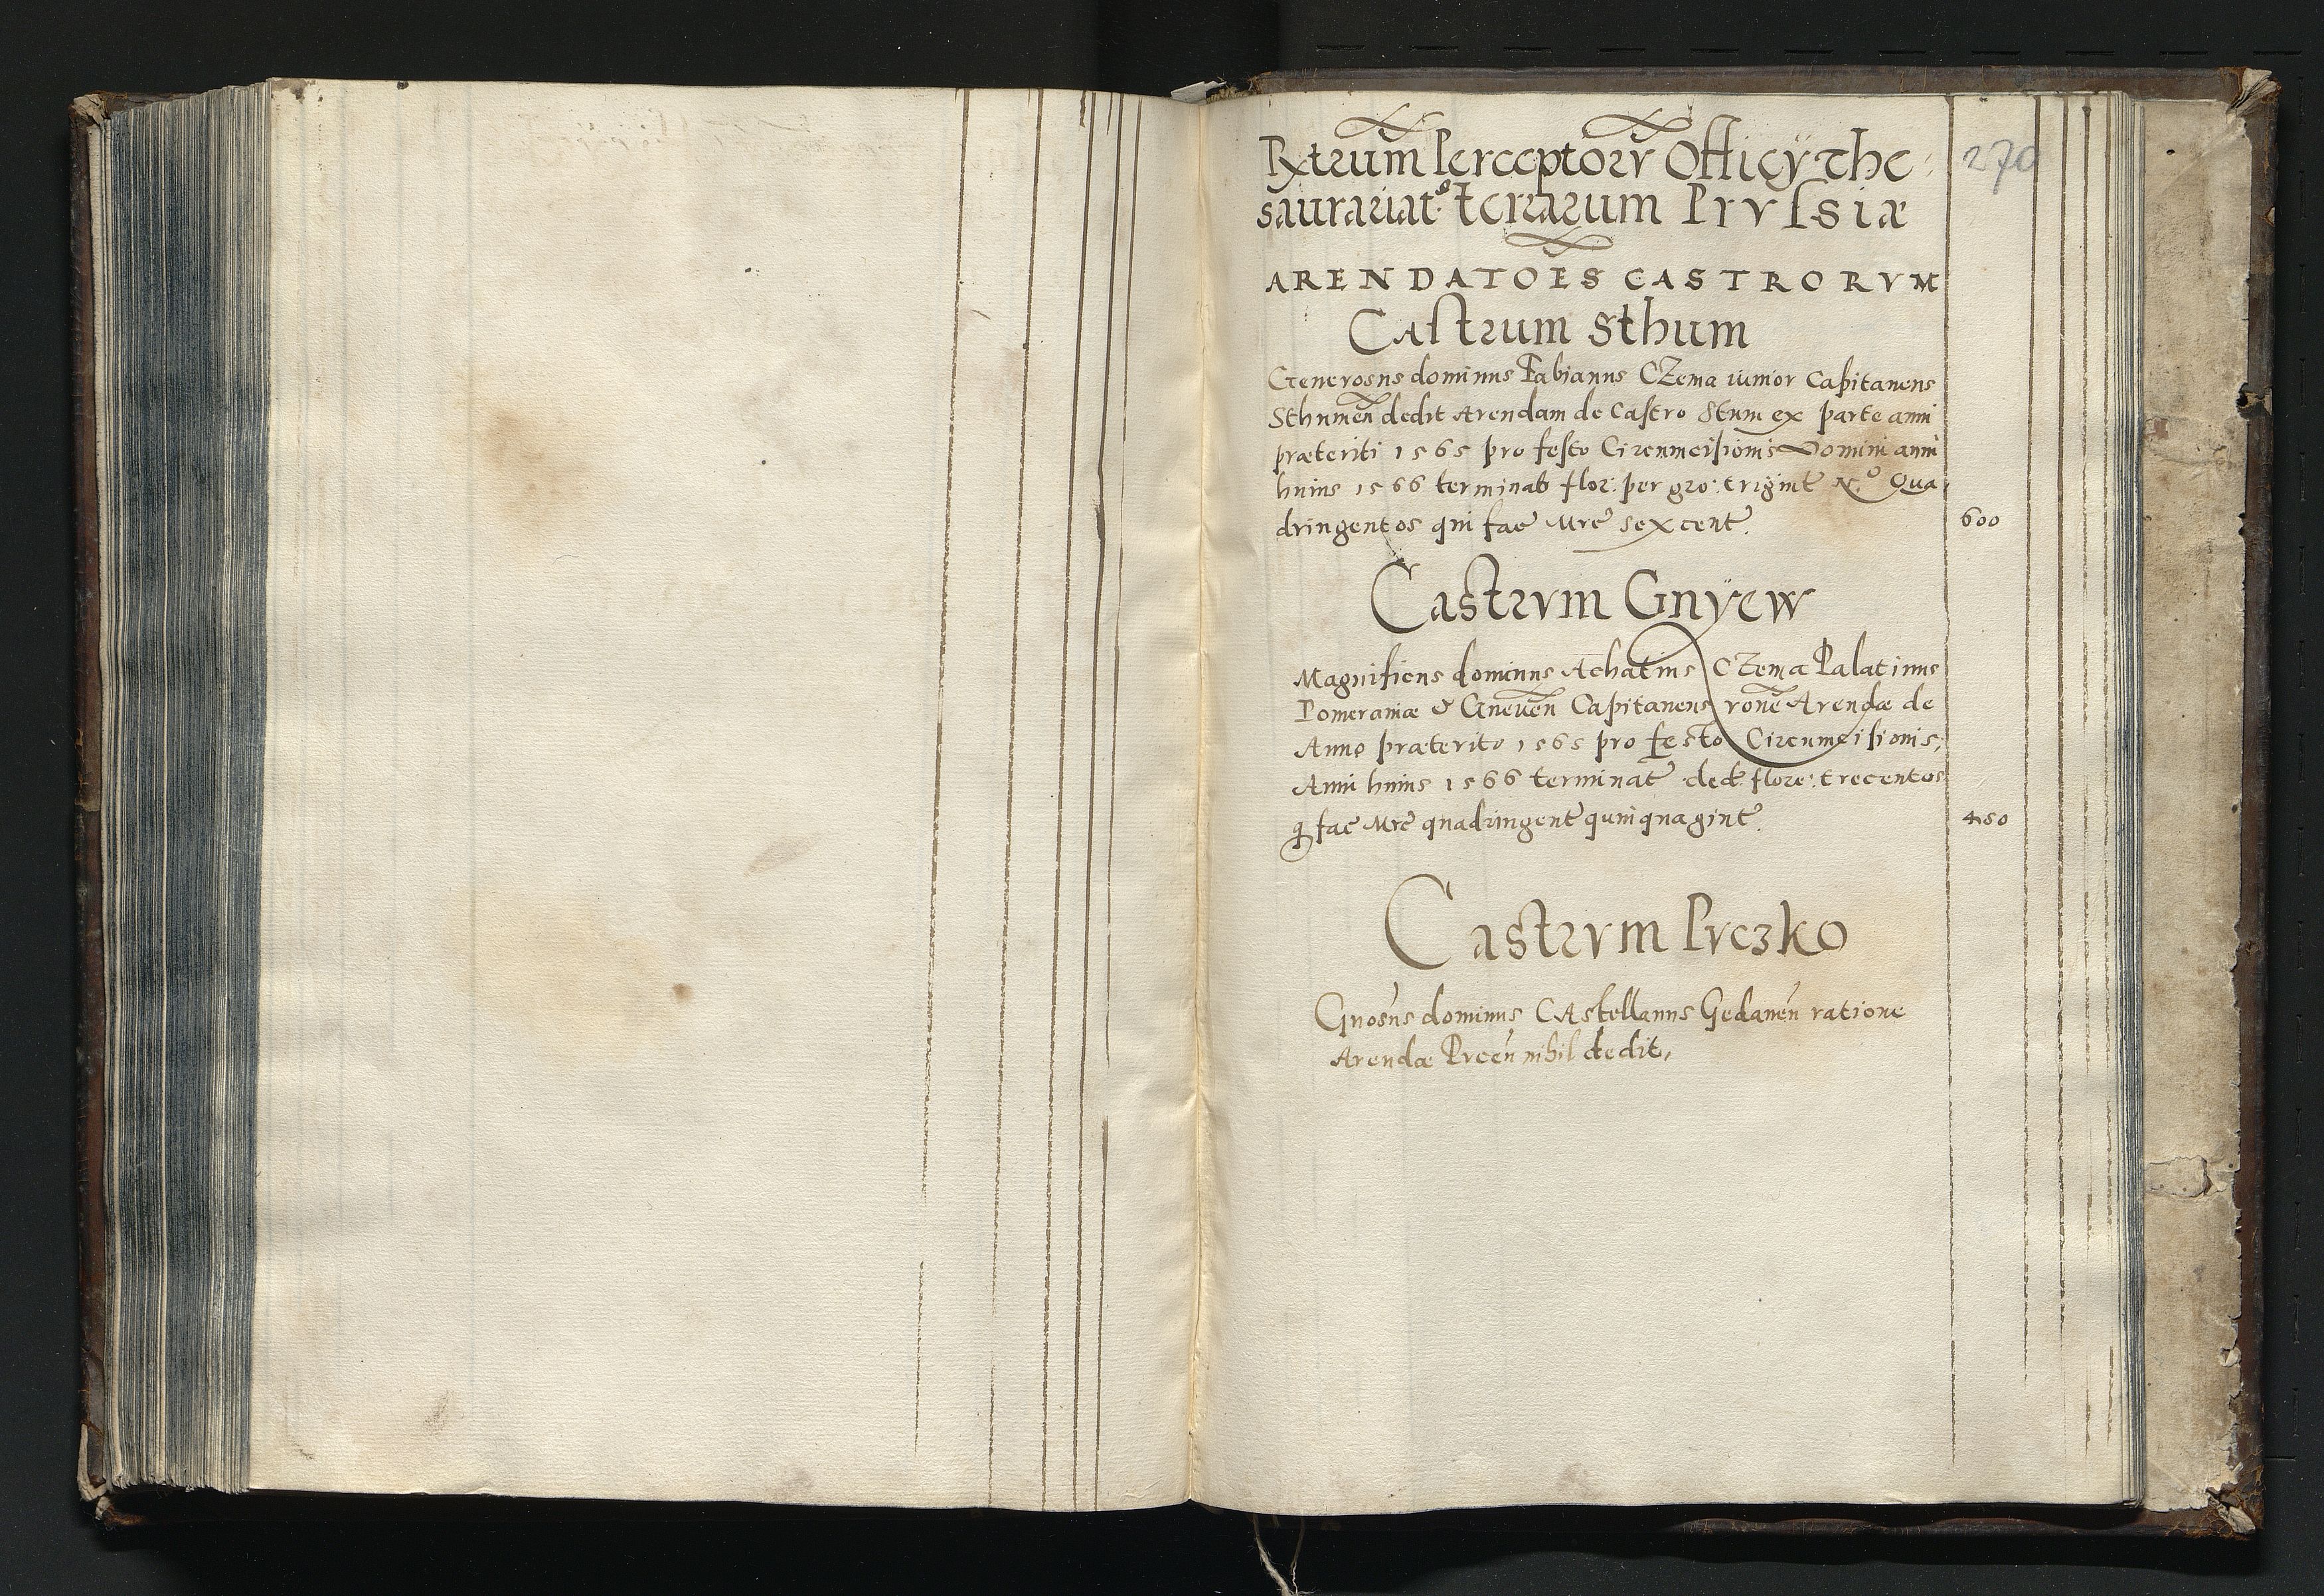 Rx̄trum Perceptorv̄ Officÿ the
270
saurariat⁹ terrarum Prvſsiæ
ARENDATOES CASTRORVM
Caſtrum Sthum
Generosus dominus Fabianus CZema iunior Capitaneus
Sthumen̄ dedit Arendam de Castro Stum ex parte anni
præteriti 1565 pro festo Circumcisionis Domini anni
huius 1566 terminat̄ flor: per gro: trigint̄ N.º Qua
dringentos qui fac̄ Mrc̄ sexcent̄.
600
Castrvm Gnÿew
Magnificus dominus Achatius CZema Palatinus
Pomeraniæ & Gneuen̄ Capitaneus ron̄e Arendæ de
Anno præterito 1565 pro festo Circumcisionis,
Anni huius 1566 terminat̄ ded̄: flore: trecentos
q̄ fac̄ Mrc̄ quadringent̄ quinquagint̄.
450
Castrvm Pvczko
Gnosus dominus CAstellanus Gedanen̄ ratione
Arendæ Pvcen̄ nihil dedit,